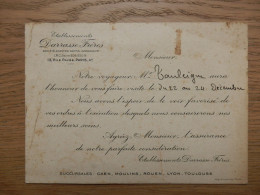 Etablissements
Darrasse Frères
Monsieur,
Notre voyageur Mr Tauleigne aura
l'honneur de vous faire visite le du 22 au 24 Décembre
Nous avons l'espoir de le voir favorisé de
vos ordres à l'exécution desquels nous consacrerons nos
meilleurs soins.
Agréez, Monsieur, l'assurance
de notre parfaite considération.
Etablissements Darrasse Frères.
SUCCURSALES: CAEN, MOULINS, ROUEN, LYON, TOULOUSE